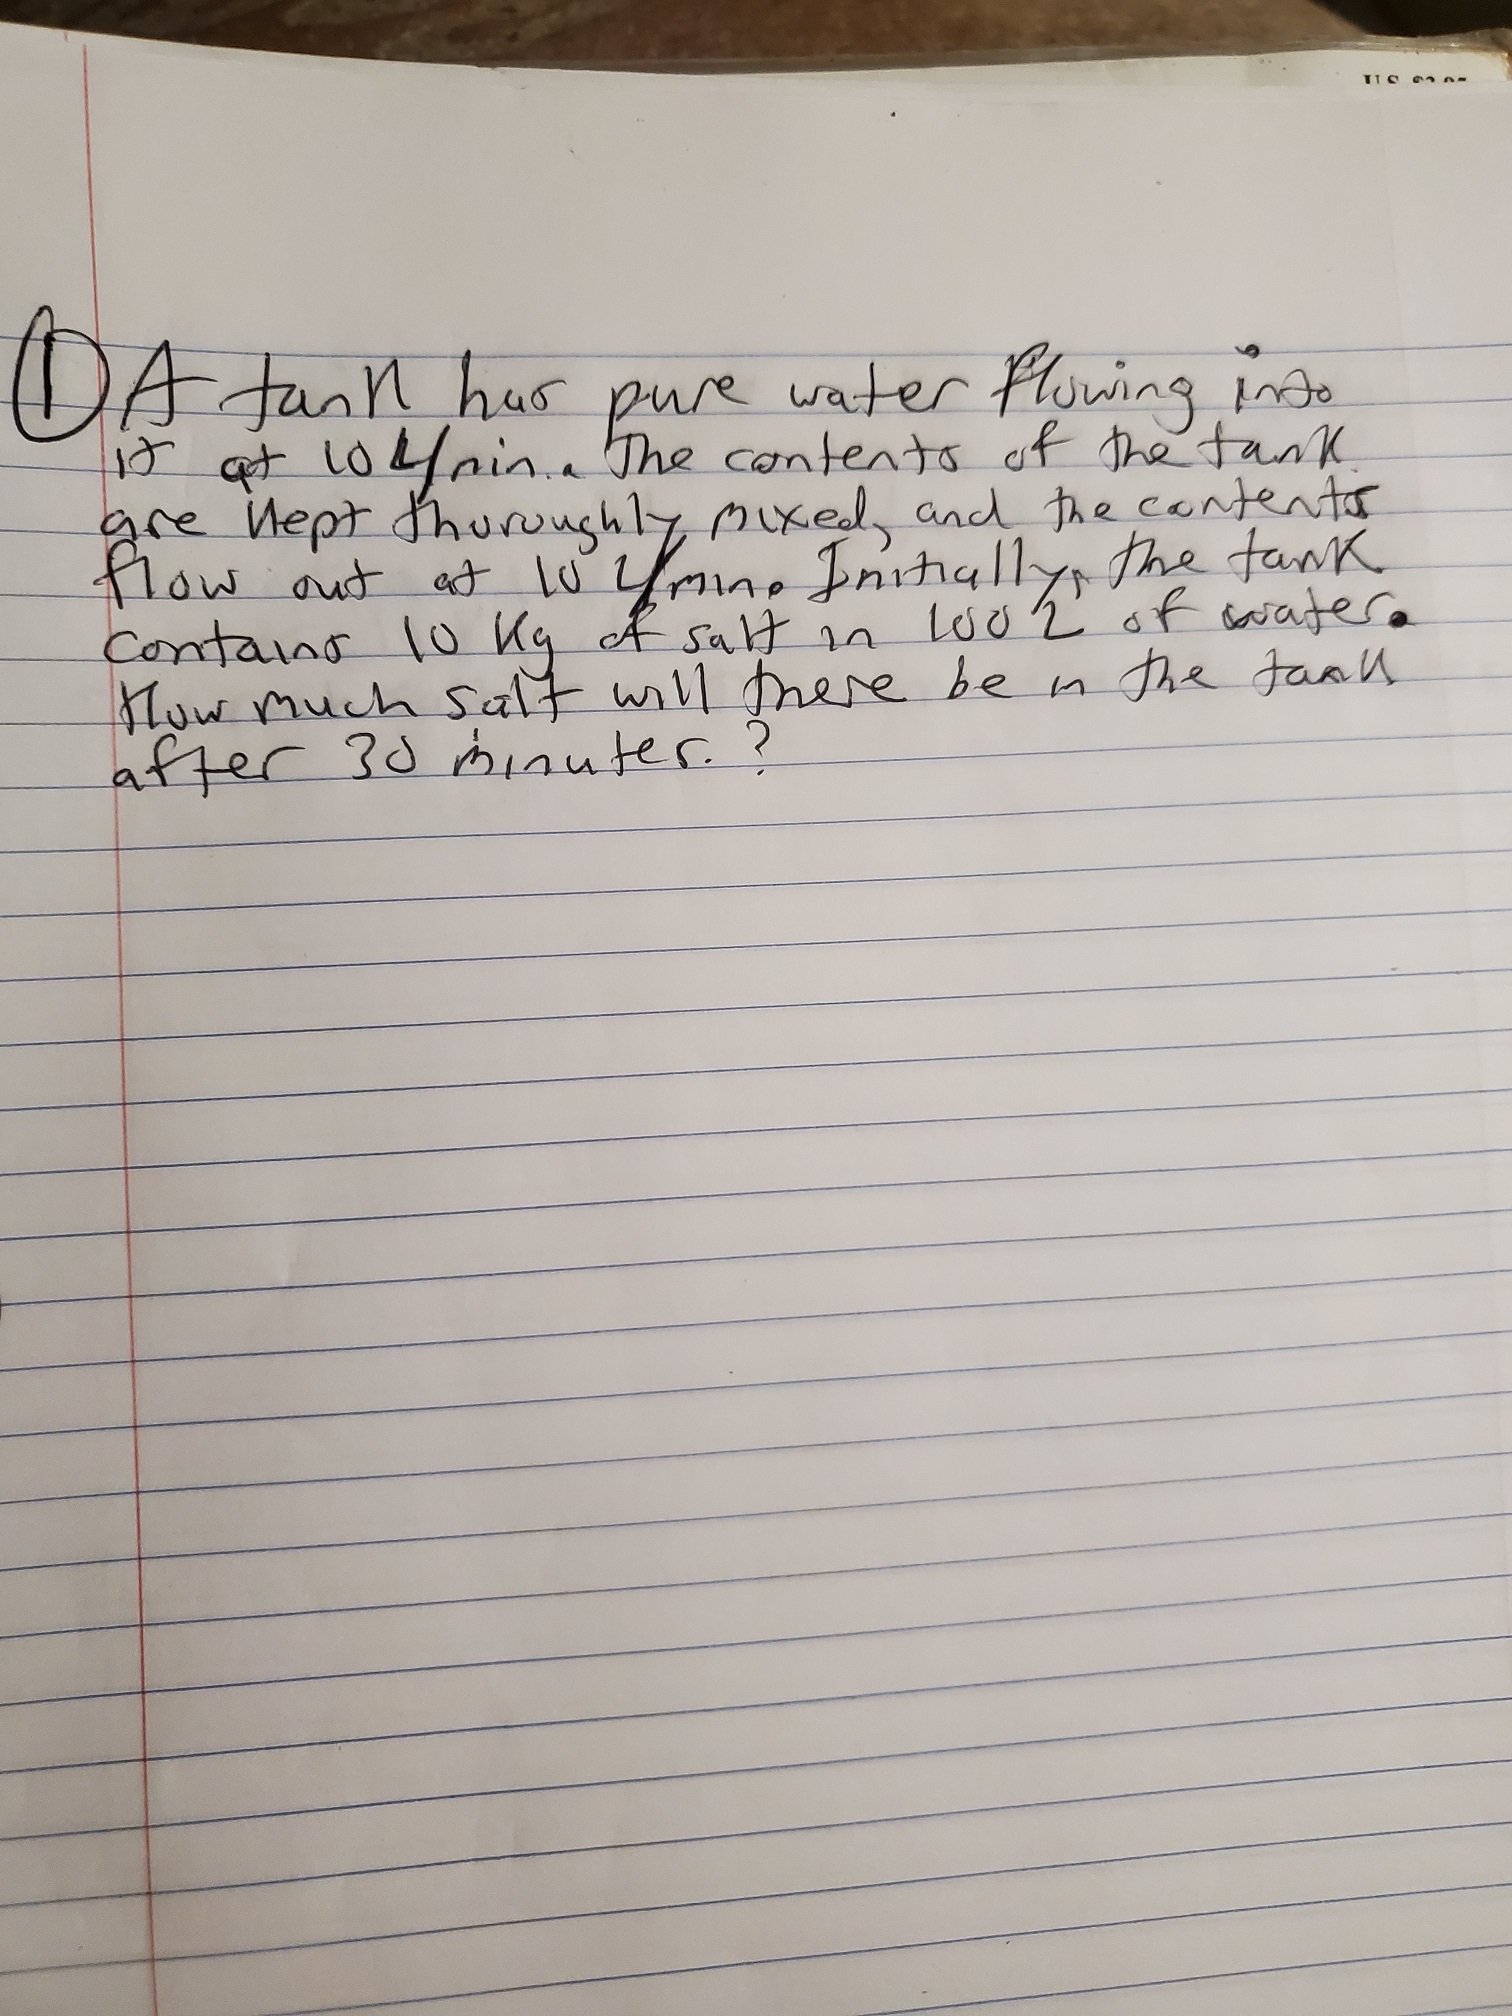 ① A tank has pure water flowing into
it at 10 L/min. The contents of the tank
are kept thoroughly mixed, and the contents
flow out at 10 L/min. Initially, the tank
contains 10 Kg of salt in 100 L of water.
How much salt will there be in the tank
after 30 minutes.?